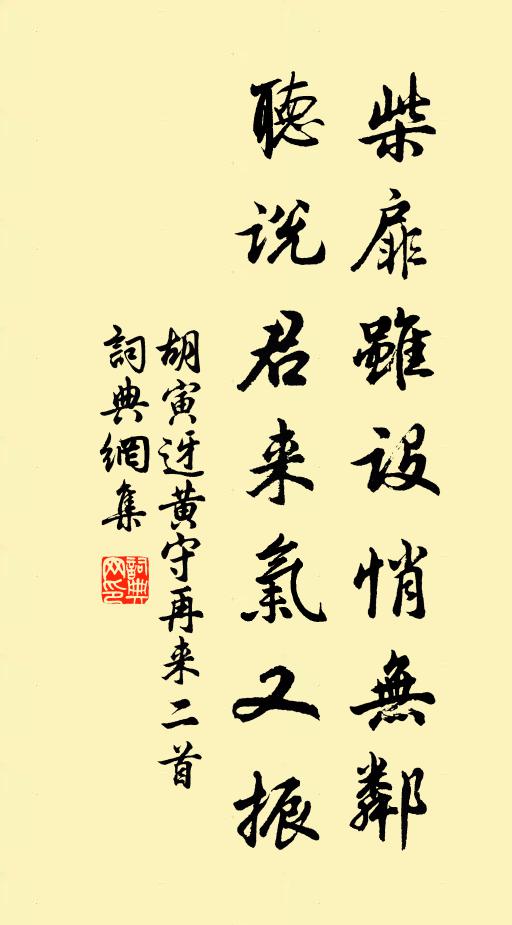 柴扉雖設悄無鄰
聽說君来氣又振
胡寅迓黃守再来二首
詞典網集
詞典网印